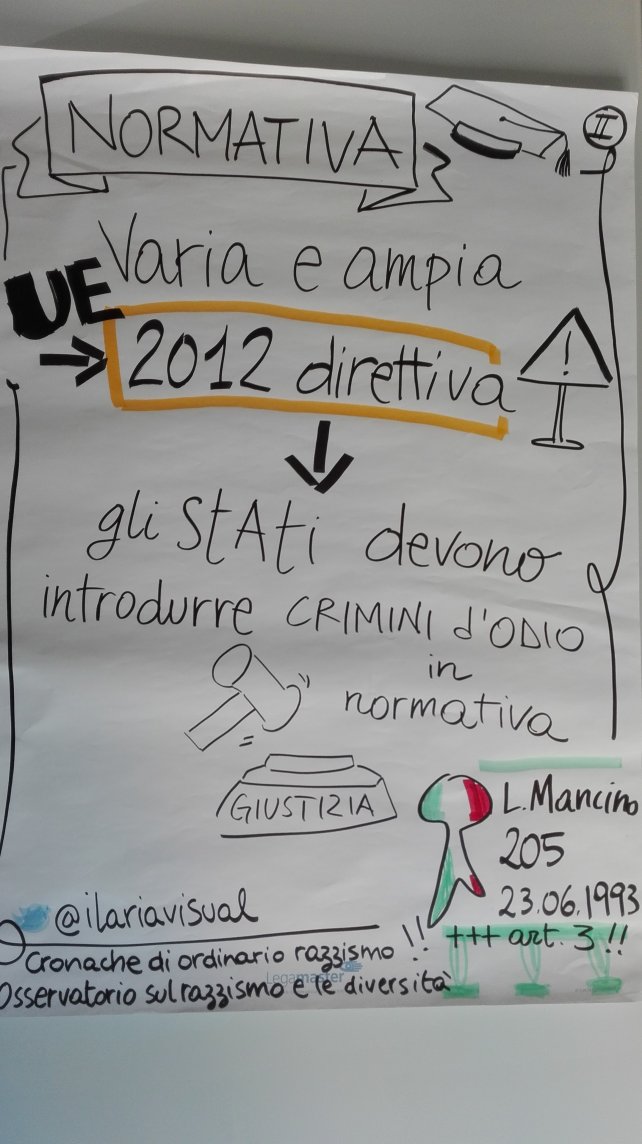 NORMATIVA
II
Varia e ampia
UE
2012 direttiva
!
gli StAti devono
introdurre CRIMINI d'ODIO
in
normativa
GIUSTIZIA
L. Mancino
205
23.06.1993
+++ art. 3 !!
@ilariavisual
Cronache di ordinario razzismo !!
Legamaster
Osservatorio sul razzismo e le diversità